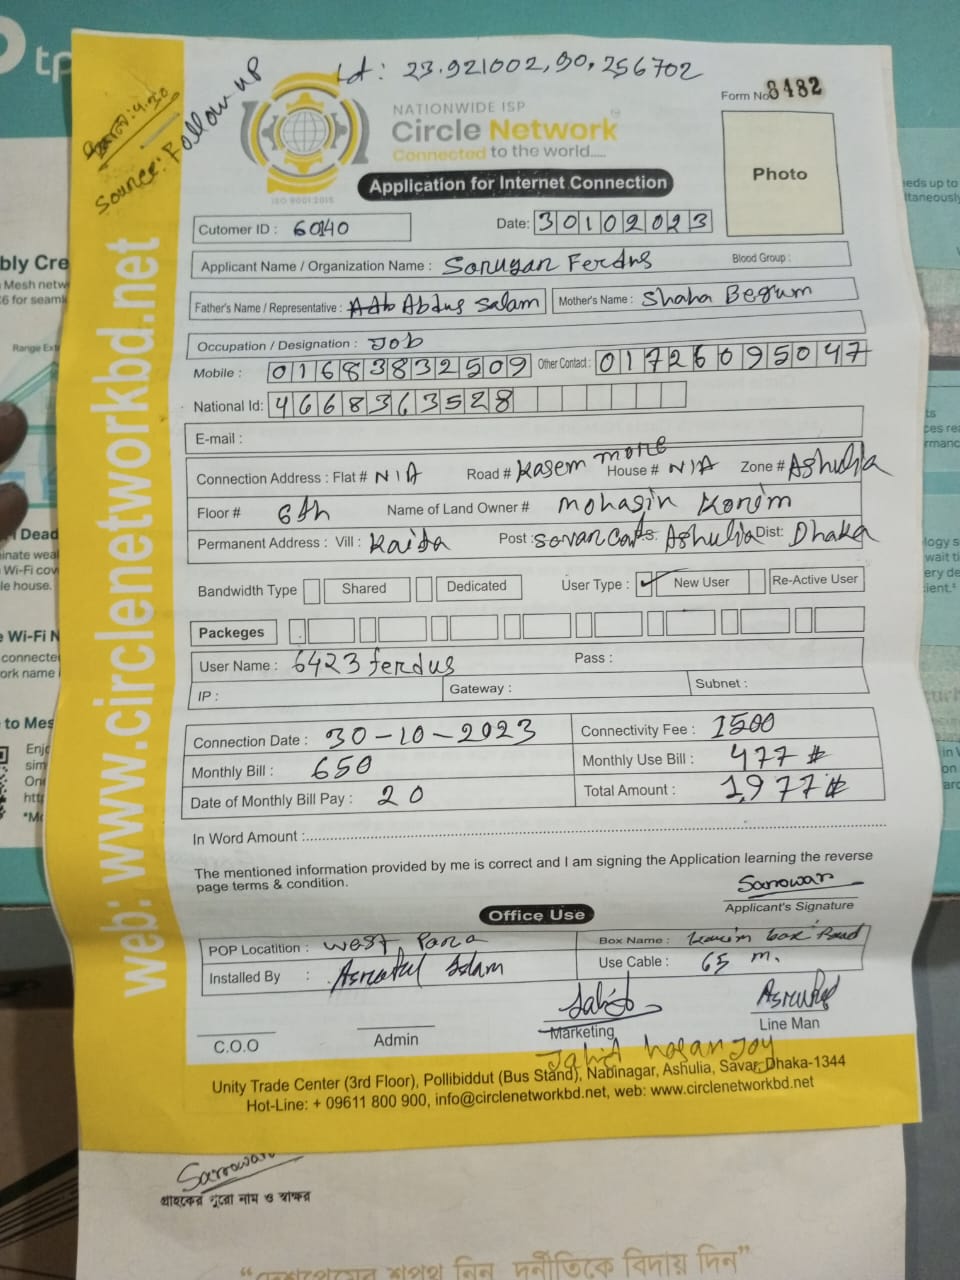 Lt: 23.921002, 90.256702
4.30
Source: Follow up
NATIONWIDE ISP
Circle Network
Connected to the world.....
ISO 9001:2015
Form No 8482
Photo
Application for Internet Connection
Cutomer ID : 60140
Date: 30102023
Applicant Name / Organization Name : Ferdus
Blood Group :
Father's Name / Representative : Abdus Salam
Mother's Name : Shaha Begum
Occupation / Designation : Job
Mobile : 01683832509 Other Contact : 01726095047
National Id: 4668363528
E-mail :
Connection Address : Flat # N/A Road # Kasem more House # N/A Zone # Ashulia
Floor # 6th Name of Land Owner # Mohasin Karim
Permanent Address : Vill : Kaiba Post : Ashulia Dist: Dhaka
Bandwidth Type Shared Dedicated User Type : New User Re-Active User
Packeges
User Name : 6423ferdus Pass :
IP : Gateway : Subnet :
Connection Date : 30-10-2023 Connectivity Fee : 1500
Monthly Bill : 650 Monthly Use Bill : 477 #
Date of Monthly Bill Pay : 20 Total Amount : 1,977 #
In Word Amount :
The mentioned information provided by me is correct and I am signing the Application learning the reverse
page terms & condition.
Sarowar
Applicant's Signature
Office Use
POP Locatition : West Para Box Name : box Road
Installed By : Islam Use Cable : 65 m.
C.O.O
Admin
Marketing
Line Man
Jahid hosan Joy
Unity Trade Center (3rd Floor), Pollibiddut (Bus Stand), Nabinagar, Ashulia, Savar, Dhaka-1344
Hot-Line: + 09611 800 900, info@circlenetworkbd.net, web: www.circlenetworkbd.net
web: www.circlenetworkbd.net
Sarrowar
গ্রাহকের পুরো নাম ও স্বাক্ষর
শপথ নিন দুর্নীতিকে বিদায় দিন”